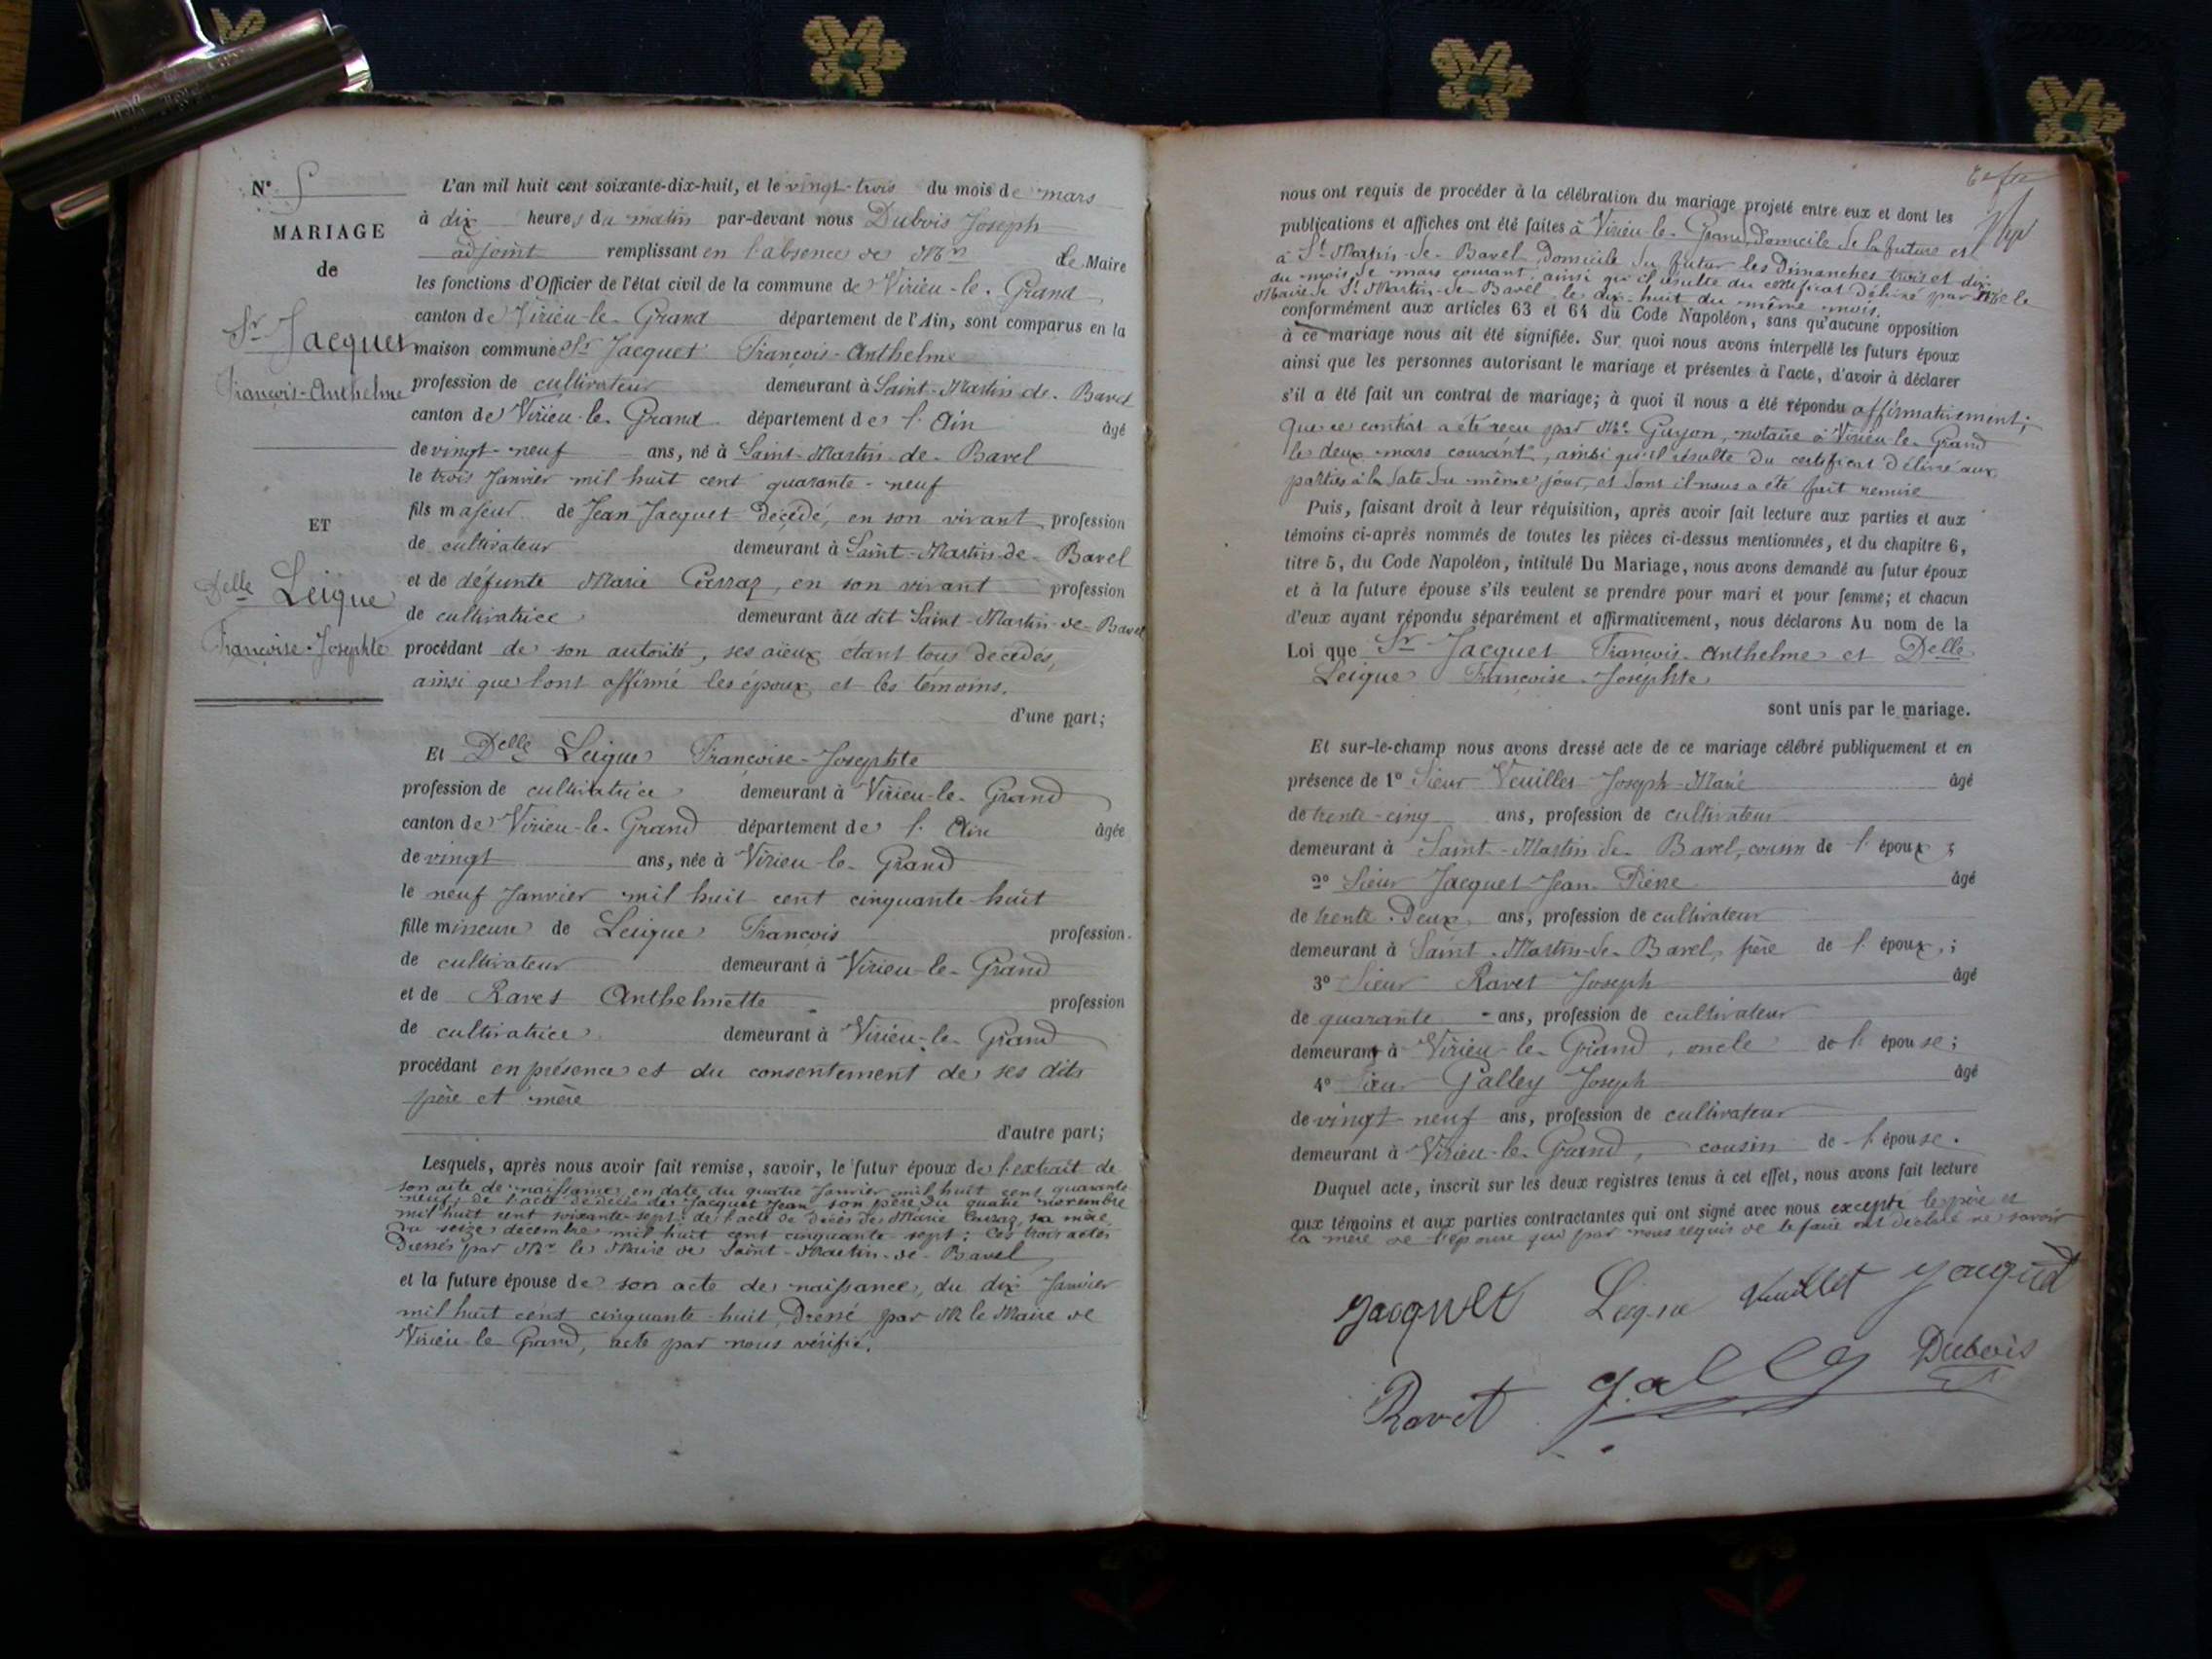 N° 5
MARIAGE
de
Sr Jacquet
François-Anthelme
ET
Delle Leigue
Françoise-Josephte
L'an mil huit cent soixante-dix-huit, et le vingt-trois du mois de mars
à dix heures du matin par-devant nous Dubois Joseph
adjoint remplissant en l'absence de Mr le Maire
les fonctions d'Officier de l'état civil de la commune de Virieu-le-Grand
canton de Virieu-le-Grand département de l'Ain, sont comparus en la
maison commune Sr Jacquet François-Anthelme
profession de cultivateur demeurant à Saint-Martin-de-Bavel
canton de Virieu-le-Grand département de l'Ain âgé
de vingt-neuf ans, né à Saint-Martin-de-Bavel
le trois Janvier mil huit cent quarante-neuf
fils majeur de Jean Jacquet décédé, en son vivant profession
de cultivateur demeurant à Saint-Martin-de-Bavel
et de défunte Marie en son vivant profession
de cultivatrice demeurant au dit Saint-Martin-de-Bavel
procédant de son autorité, ses aïeux étant tous décédés,
ainsi que l'ont affirmé les époux et les témoins.
d'une part;
Et Delle Leigue Françoise-Josephte
profession de cultivatrice demeurant à Virieu-le-Grand
canton de Virieu-le-Grand département de l'Ain âgée
de vingt ans, née à Virieu-le-Grand
le neuf Janvier mil huit cent cinquante-huit
fille mineure de Leigue François profession
de cultivateur demeurant à Virieu-le-Grand
et de Ravet Anthelmette profession
de cultivatrice demeurant à Virieu-le-Grand
procédant en présence et du consentement de ses dits
père et mère
d'autre part;
Lesquels, après nous avoir fait remise, savoir, le futur époux de l'extrait de
son acte de naissance en date du quatre Janvier mil huit cent quarante
neuf; de l'acte de décès de Jacquet Jean son père du quatre novembre
mil huit cent soixante-sept; de l'acte de décès de Marie sa mère
du seize décembre mil huit cent cinquante-sept; ces trois actes
Dressés par Mr le Maire de Saint-Martin-de-Bavel
et la future épouse de son acte de naissance, du dix Janvier
mil huit cent cinquante-huit, Dressé par M le Maire de
Virieu-le-Grand, acte par nous vérifié.
nous ont requis de procéder à la célébration du mariage projeté entre eux et dont les
publications et affiches ont été faites à Virieu-le-Grand, domicile de la future et
à St Martin-de-Bavel, Domicile du futur les Dimanches trois et dix
du mois de mars courant, ainsi qu'il résulte du certificat délivré par Mr le
Maire de St Martin-de-Bavel, le dix-huit du même mois.
conformément aux articles 63 et 64 du Code Napoléon, sans qu'aucune opposition
à ce mariage nous ait été signifiée. Sur quoi nous avons interpellé les futurs époux
ainsi que les personnes autorisant le mariage et présentes à l'acte, d'avoir à déclarer
s'il a été fait un contrat de mariage; à quoi il nous a été répondu affirmativement;
Que ce contrat a été reçu par Me Guyon, notaire à Virieu-le-Grand
le deux mars courant, ainsi qu'il résulte du certificat délivré aux
parties à la date du même jour, et dont il nous a été fait remise
Puis, faisant droit à leur réquisition, après avoir fait lecture aux parties et aux
témoins ci-après nommés de toutes les pièces ci-dessus mentionnées, et du chapitre 6,
titre 5, du Code Napoléon, intitulé Du Mariage, nous avons demandé au futur époux
et à la future épouse s'ils veulent se prendre pour mari et pour femme; et chacun
d'eux ayant répondu séparément et affirmativement, nous déclarons Au nom de la
Loi que Sr Jacquet François-Anthelme et Delle
Leigue Françoise-Josephte
sont unis par le mariage.
Et sur-le-champ nous avons dressé acte de ce mariage célébré publiquement et en
présence de 1° Sieur Veuillet Joseph-Marie âgé
de trente-cinq ans, profession de cultivateur
demeurant à Saint-Martin-de-Bavel, cousin de l'époux;
2° Sieur Jacquet Jean-Pierre âgé
de trente-Deux ans, profession de cultivateur
demeurant à Saint-Martin-de-Bavel, frère de l'époux;
3° Sieur Ravet Joseph âgé
de quarante ans, profession de cultivateur
demeurant à Virieu-le-Grand, oncle de l'épouse;
4° Sieur Galley Joseph âgé
de vingt-neuf ans, profession de cultivateur
demeurant à Virieu-le-Grand, cousin de l'épouse.
Duquel acte, inscrit sur les deux registres tenus à cet effet, nous avons fait lecture
aux témoins et aux parties contractantes qui ont signé avec nous excepté le père et
la mère de l'épouse qui par nous requis de le faire ont déclaré ne savoir
Jacquet Leigue Veuillet Jacquet
Ravet Galley Dubois